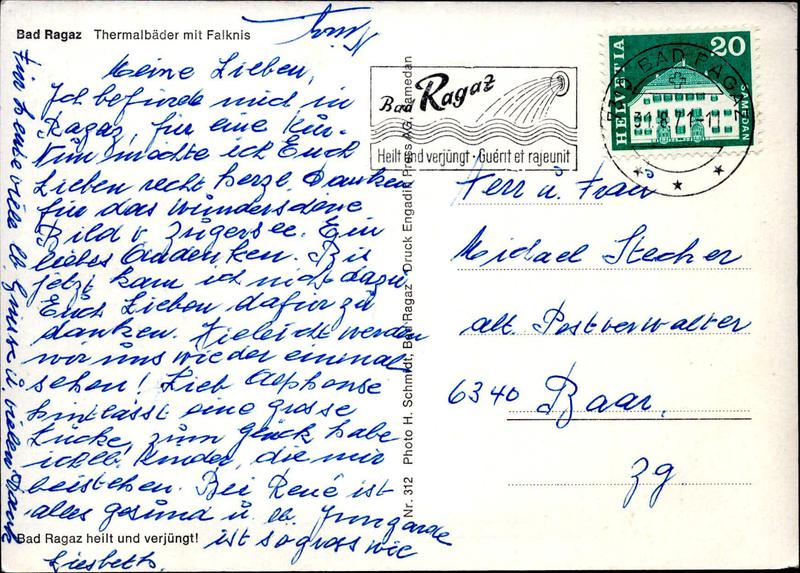 Bad Ragaz Thermalbäder mit Falknis
Meine Lieben,
Ich befinde mich in
Ragaz, für eine Kur.
Nun möchte ich Euch
Lieben recht herzl. Danken
für das wunderschöne
Bild v. Zugersee. Ein
liebes Andenken. Bis
jetzt kam ich nicht dazu
Euch Lieben dafür zu
danken. Vieleicht werden
wir uns wieder einmal
sehen! Lieb Alphonse
hintlässt eine grosse
Lücke, zum glück habe
ich lb. Kinder, die mir
beistehen. Bei René ist
alles gesund u. lb. Irmgard
ist so gross wie
Liesbeth.
Für heute viele lb. Grüsse u. vielen Dank
Bad Ragaz heilt und verjüngt!
Nr. 312 Photo H. Schmidt, Bad Ragaz · Druck Engadin Press AG, Samedan
Bad Ragaz
Heilt und verjüngt · Guérit et rajeunit
HELVETIA
20
SAMEDAN
BAD RAGAZ
Herr u. Frau
Michael Stecher
alt. Postverwalter
6340 Baar.
Zg.